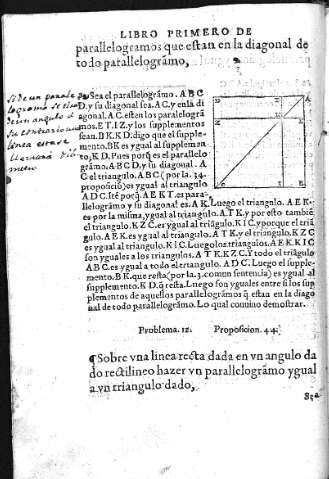 LIBRO PRIMERO DE
parallelogramos que estan en la diagonal de
todo parallelográmo,
Si de un parale
lineas
Sea el parallelográmo. A B C
D. y su diagonal sea. A C, y en la di
agonal. A C. estén los paralelográ
mos. E T. I Z, y los supplementos
sean. B K K D: digo que el supple-
mento. BK es ygual al supplemen
to, K D. Pues porq̃ es el parallelo
grámo, A B C D, y su diagonal. A
C el triangulo. A B C (por la. 34.
proposiciō) es ygual al triangulo
A D C. Itē porq̃. A E K T. es para-
llelográmo y su diagonal es. A K. Luego el triangulo. A E K.
es por la misma, ygual al triangulo. A T K. y por esto tambiē
el triangulo. K Z C. es ygual al triāgulo. K I C, y porque el triā
gulo. A E K. es ygual al triangulo. A T K. y el triangulo. K Z C
es ygual al triangulo. K I C. Luego los triangulos. A E K. K I C
son yguales a los triangulos. A T K. K Z C. Y todo el triāgulo
A B C. es ygual a todo el triangulo. A D C. Luego el supple-
mento. B K. que resta (por la. 3. comun sentencia) es ygual al
supplemento. K D. q̃ resta. Luego son yguales entre si los sup
plementos de aquellos parallelográmos q̃ estan en la diago
nal de todo parallelográmo. Lo qual conuino demostrar.
Problema. 12. Proposicion. 44.
¶Sobre vna linea recta dada en vn angulo da
do rectilineo hazer vn parallelográmo ygual
a vn triangulo dado,